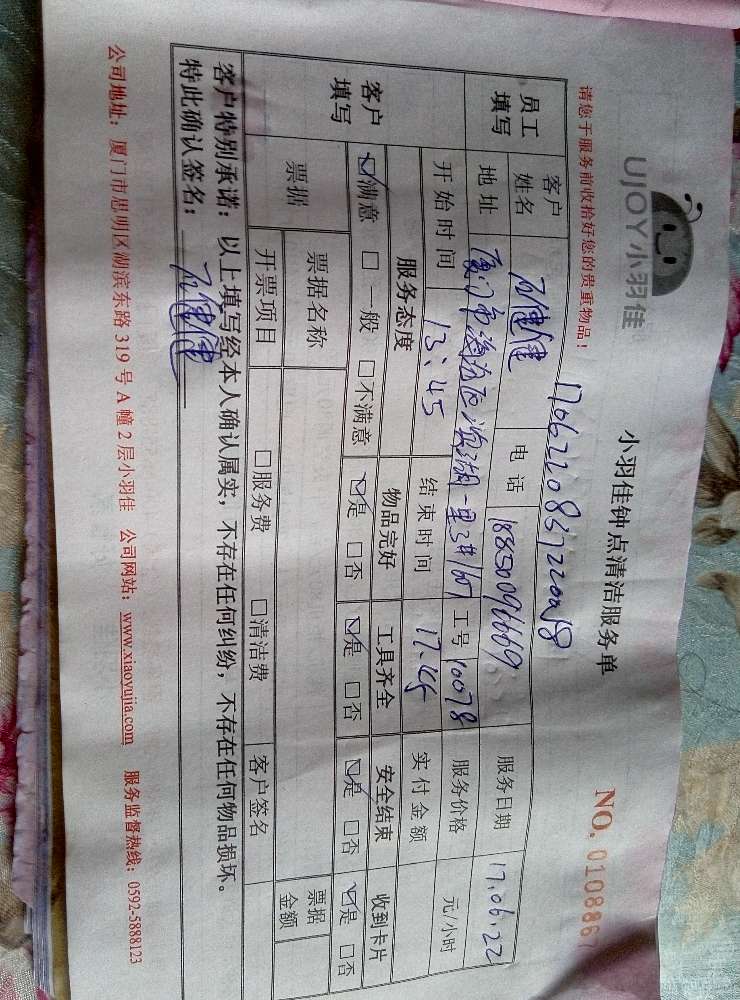 UJOY小羽佳
小羽佳钟点清洁服务单
NO. 0108867
请您于服务前收拾好您的贵重物品！
员工填写
客户姓名
电话
18850096669
服务日期
17.06.22
地址
工号
10078
服务价格
元/小时
开始时间
13:45
结束时间
17.45
实付金额
客户填写
服务态度
物品完好
工具齐全
安全结束
收到卡片
☑满意 □一般 □不满意
☑是 □否
☑是 □否
☑是 □否
☑是 □否
票据
票据名称
开票项目
□服务费
□清洁费
客户签名
票据金额
客户特别承诺：以上填写经本人确认属实，不存在任何纠纷，不存在任何物品损坏。
特此确认签名：
公司地址：厦门市思明区湖滨东路319号A幢2层小羽佳 公司网站：www.xiaoyujia.com 服务监督热线：0592-5888123